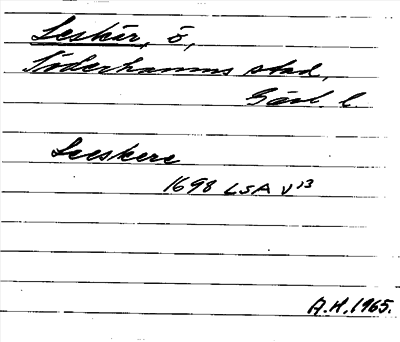 Leskär, ö,
Söderhamns stad,
Gävl. l.
Leeskere
1698 LSA V¹³
A.H. 1965.